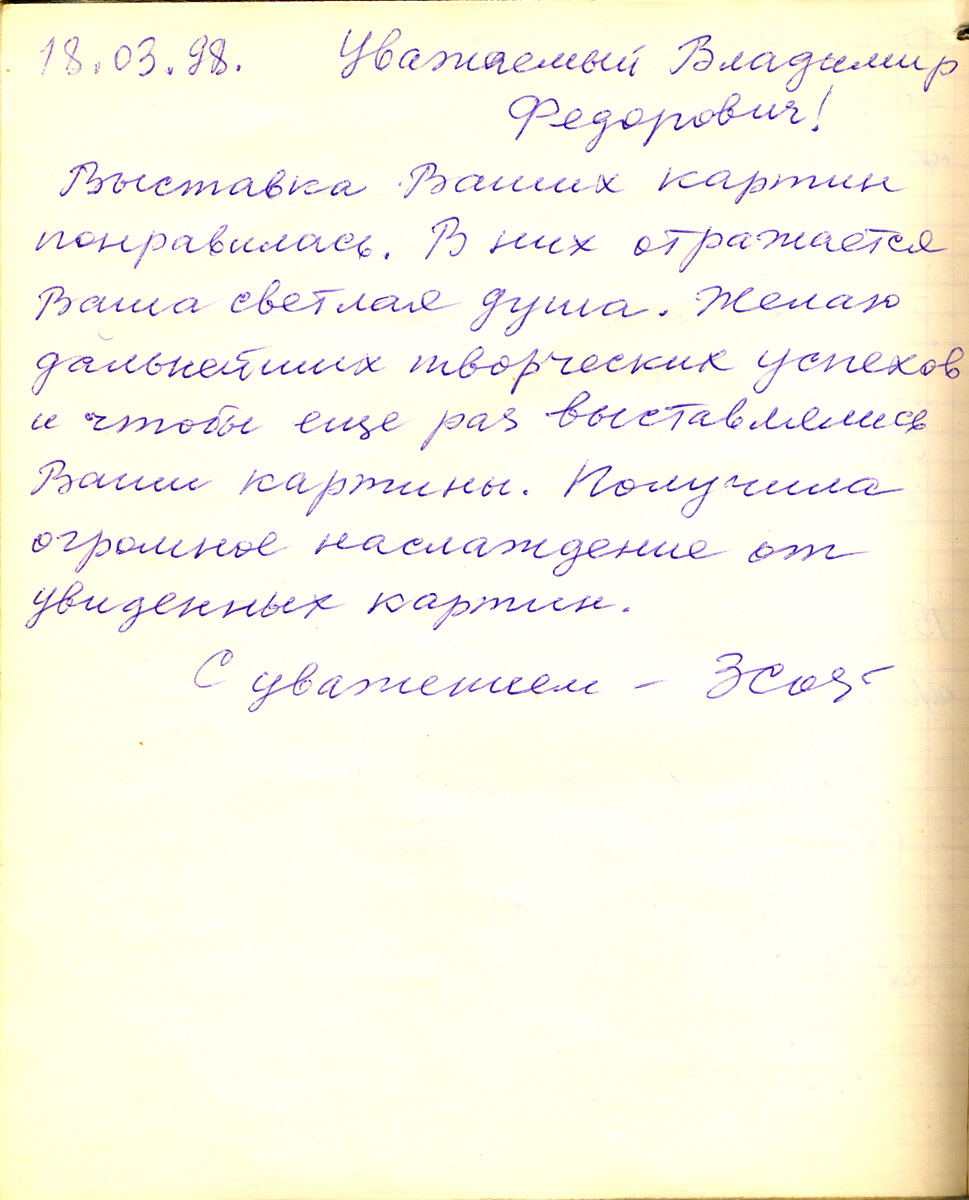 18.03.98. Уважаемый Владимир
Федорович!
Выставка Ваших картин
понравилась. В них отражается
Ваша светлая душа. Желаю
дальнейших творческих успехов
и чтобы еще раз выставлялись
Ваши картины. Получила
огромное наслаждение от
увиденных картин.
С уважением –